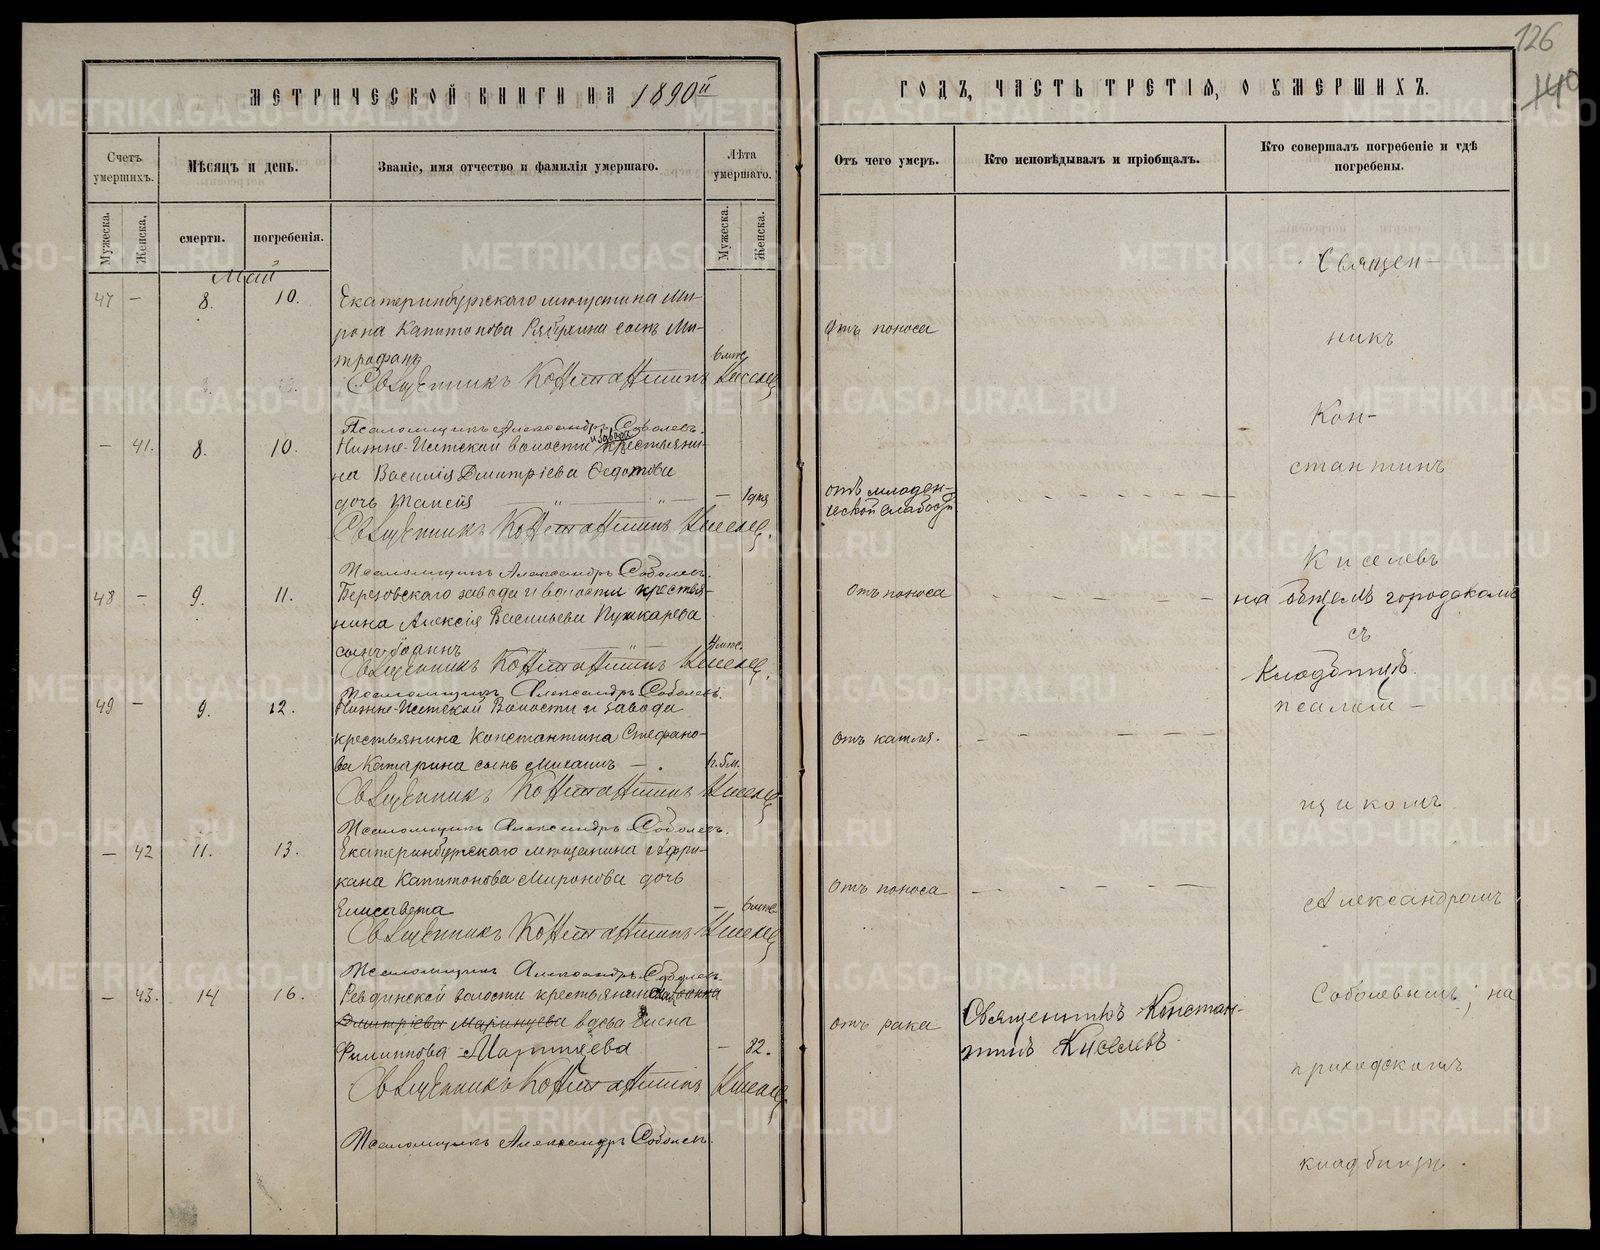 МЕТРИЧЕСКОЙ КНИГИ НА 1890й
Счетъ умершихъ.
Мѣсяцъ и день.
Званіе, имя отчество и фамилія умершаго.
Лѣта умершаго.
Мужеска.
Женска.
смерти.
погребенія.
Мужеска.
Женска.
Май
47 — 8. 10. Екатеринбургскаго мѣщанина Ми-
рона Капитонова сынъ Ми-
трофанъ 6 мѣс.
Священникъ Константинъ Киселев
Псаломщикъ Александръ Соболевъ.
— 41. 8. 10. Нижне-Исетской волости и завода крестьяни-
на Василія Дмитріева Федотова
дочь Таисія — 1 дня
Священникъ Константинъ Киселев.
Псаломщикъ Александръ Соболевъ.
48 — 9. 11. Березовскаго завода и волости крестья-
нина Алексія Васильева Пушкарева
сынъ Іоаннъ 4 мѣс.
Священникъ Константинъ Киселев.
Псаломщикъ Александръ Соболевъ.
49 — 9. 12. Нижне-Исетской Волости и завода
крестьянина Константина Стефано-
ва Катарина сынъ Михаилъ — .
Священникъ Константинъ Киселев
Псаломщикъ Александръ Соболевъ.
— 42 11. 13. Екатеринбургскаго мѣщанина Афри-
кана Капитонова Миронова дочь
Елисавета — 6 мѣс
Священникъ Константинъ Киселев
Псаломщикъ Александръ Соболевъ.
— 43. 14 16. Ревдинской волости крестьянина
Дмитріева Маринцева вдова
Филиппова — 82.
Священникъ Константинъ Киселев.
Псаломщикъ Александръ Соболевъ.
126
140
ГОДЪ, ЧАСТЬ ТРЕТІЯ, О УМЕРШИХЪ.
Отъ чего умеръ.
Кто исповѣдывалъ и пріобщалъ.
Кто совершалъ погребеніе и гдѣ
погребены.
Священ-
отъ поноса
никъ
Кон-
стантинъ
отъ младен-
ческой слабости
Киселевъ
отъ поноса
на общемъ городскомъ
съ
кладбищѣ.
псалом-
отъ кашля.
щикомъ
отъ поноса
Александромъ
Соболевымъ; на
Священникъ Констан-
отъ рака
тинъ Киселевъ.
приходскомъ
кладбищѣ.
METRIKI.GASO-URAL.RU